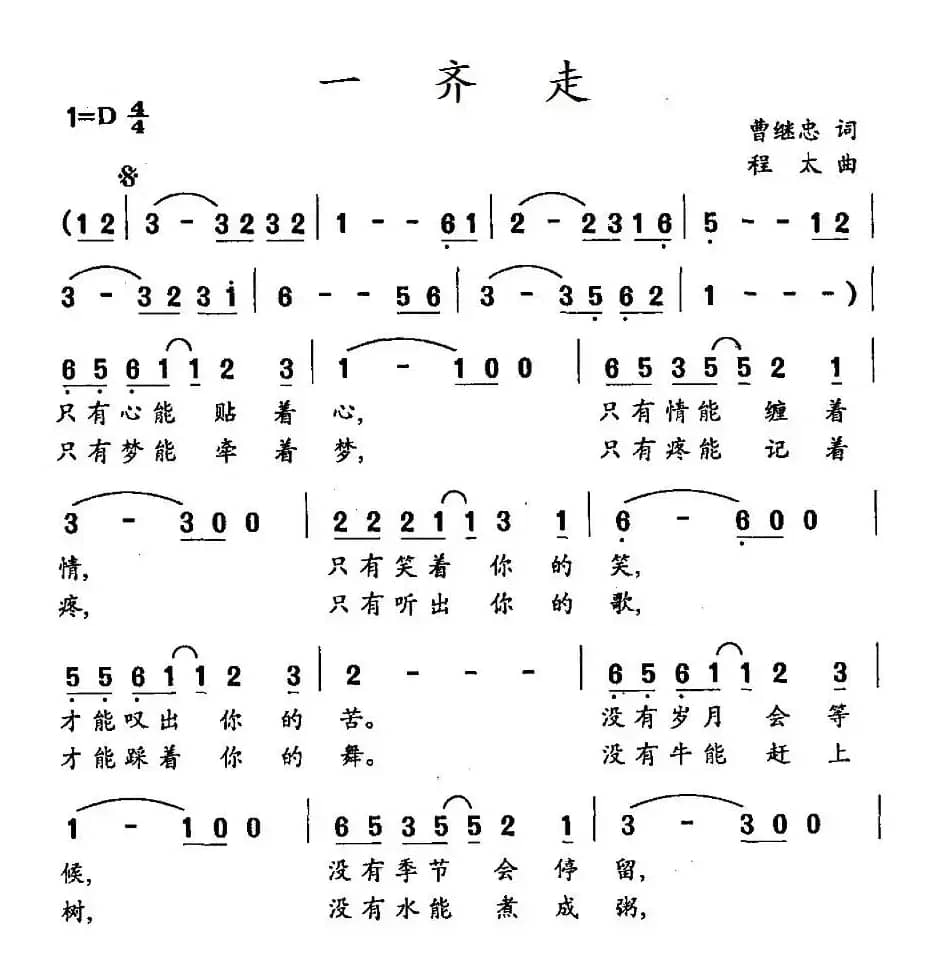 一 齐 走
1=D 4/4
曹继忠 词
程 太 曲
(1 2 | 3 - 3 2 3 2 | 1 - - 6 1 | 2 - 2 3 1 6 | 5 - - 1 2 |
3 - 3 2 3 i | 6 - - 5 6 | 3 - 3 5 6 2 | 1 - - - ) |
6 5 6 1 1 2 3 | 1 - 1 0 0 | 6 5 3 5 5 2 1 |
只有心能 贴 着 心, 只有情能 缠 着
只有梦能 牵 着 梦, 只有疼能 记 着
3 - 3 0 0 | 2 2 2 1 1 3 1 | 6 - 6 0 0 |
情, 只有笑着 你 的 笑,
疼, 只有听出 你 的 歌,
5 5 6 1 1 2 3 | 2 - - - | 6 5 6 1 1 2 3 |
才能叹出 你 的 苦。 没有岁月 会 等
才能踩着 你 的 舞。 没有牛能 赶 上
1 - 1 0 0 | 6 5 3 5 5 2 1 | 3 - 3 0 0 |
候, 没有季节 会 停 留,
树, 没有水能 煮 成 粥,